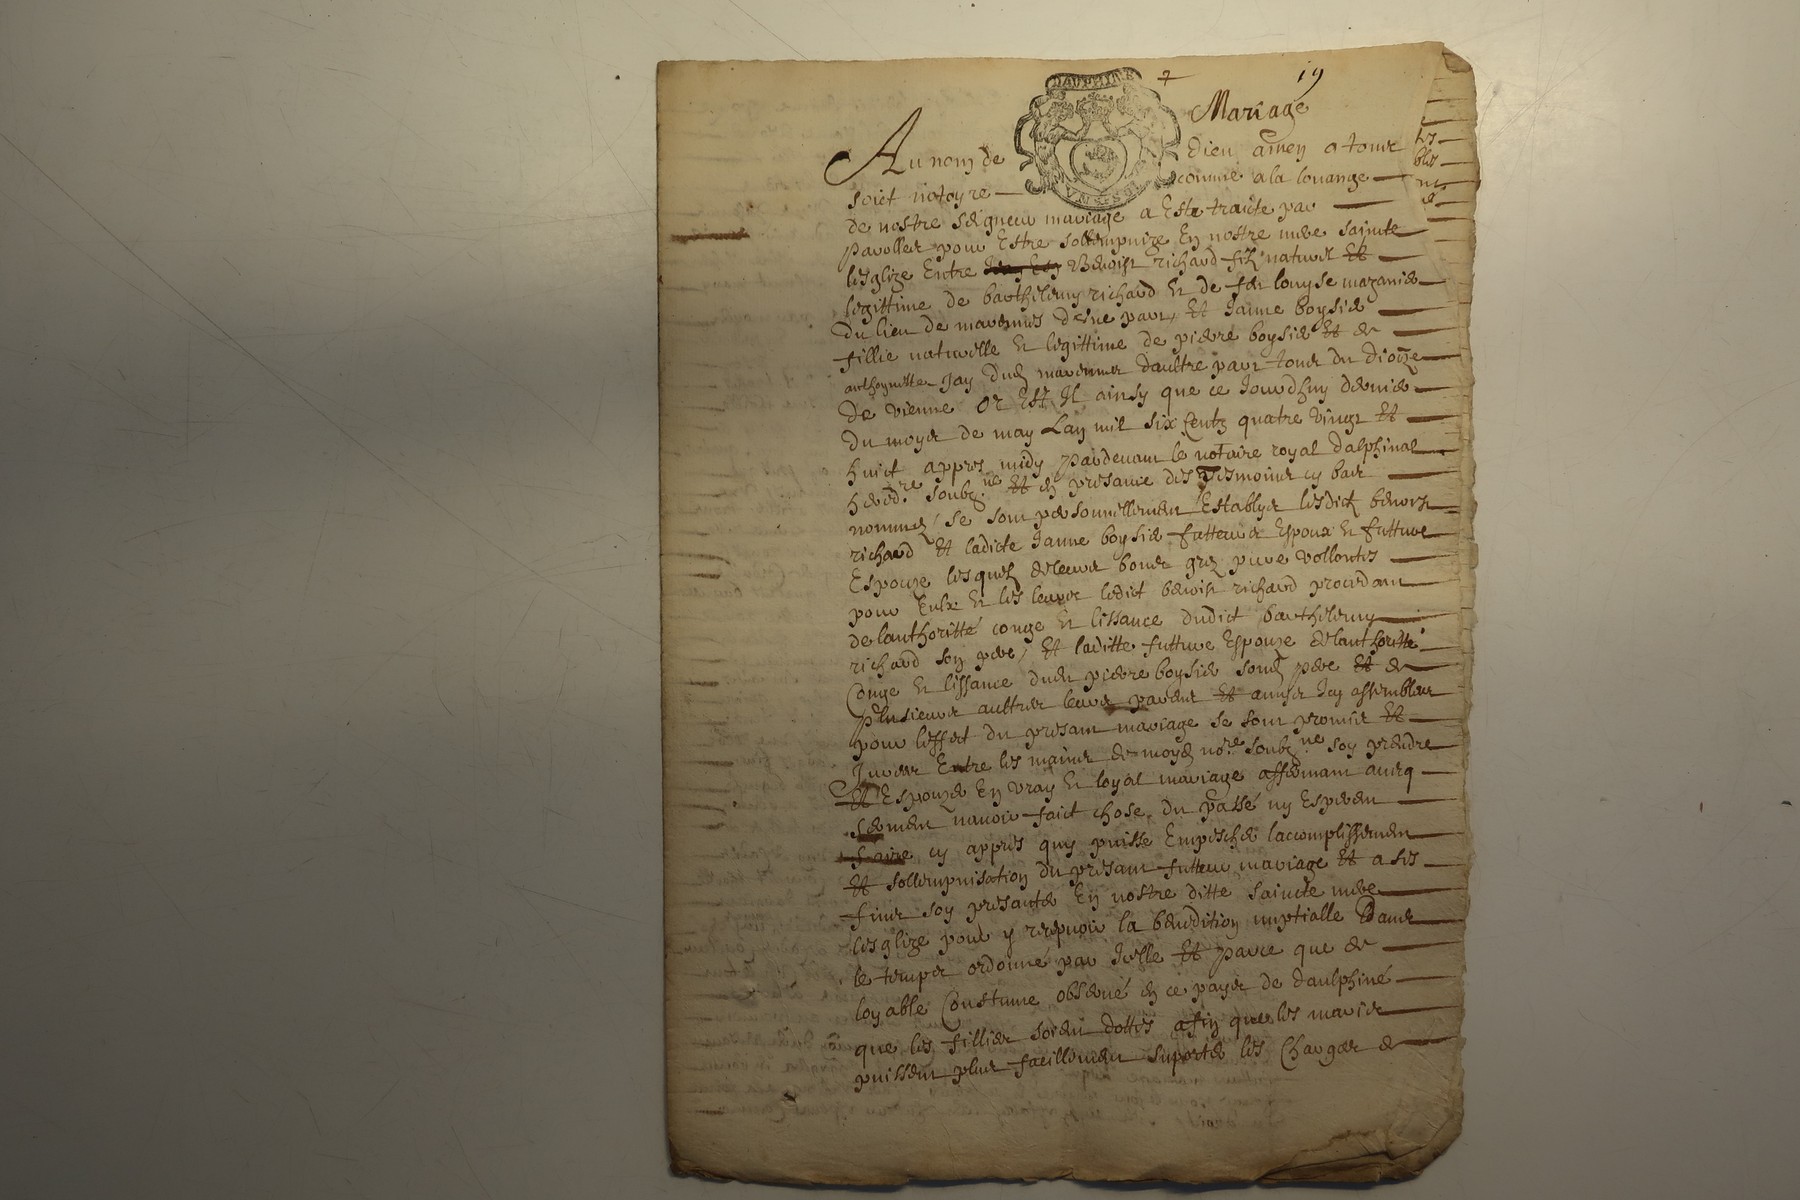 DAUPHINE
19
Mariage
Au nom de Dieu amen a tous
soict notoyre comme a la louange
de nostre seigneur mariage a Esté traicté par
parolles pour Estre sollempnize En nostre mere saincte
lesglize Entre Benoist richard filz naturel Et
legittime de barthelemy richard Et de feu louyse mazanier
du lieu de d'une part, Et Janne boysie
fillie naturelle Et legittime de pierre boysie Et de
anthoynette Jay dud daultre part tous du dioceze
de vienne Or Est Il ainsy que ce Jourdhuy dernier
du moys de may Lan mil six Centz quatre vingt Et
huict appres midy pardevant le notaire royal dalphinal
hered.re soubz.ne Et en presance des tesmoins cy bas
nommes se sont personnellement Establys lesdictz benoist
richard Et ladicte Janne boysie futteurs Espoux Et futture
Espouze lesquelz de leurs bons grez pure vollontes
pour Eulx Et les leurs ledict benoist richard procedant
de lauthoritté conge Et lissance dudict barthelemy
richard son pere, Et laditte futture Espouze de lauthoritté
Conge Et lissance dud pierre boysie sond pere Et de
plusieurs aultres leurs parens Et amys Icy assembles
pour leffect du presant mariage se sont promis Et
Jurer Entre les mains de moyd no.re soubz.ne soy prendre
Et Espouzer En vray Et loyal mariage affermant avecq
serment navoir faict chose du passé ny Esperer
faire cy appres quy puisse Empescher laccomplissement
Et sollempnisation du presant futteur mariage Et a ses
fins soy presanter En nostre ditte saincte mere
lesglize pour y recepvoir la benedition nuptialle Dans
le temps ordonné par Icelle Et parce que de
loyable Coustume observé en ce pays de daulphiné
que les fillies soient dottes afin que les maris
puissent plus facillement suporter les Charges de